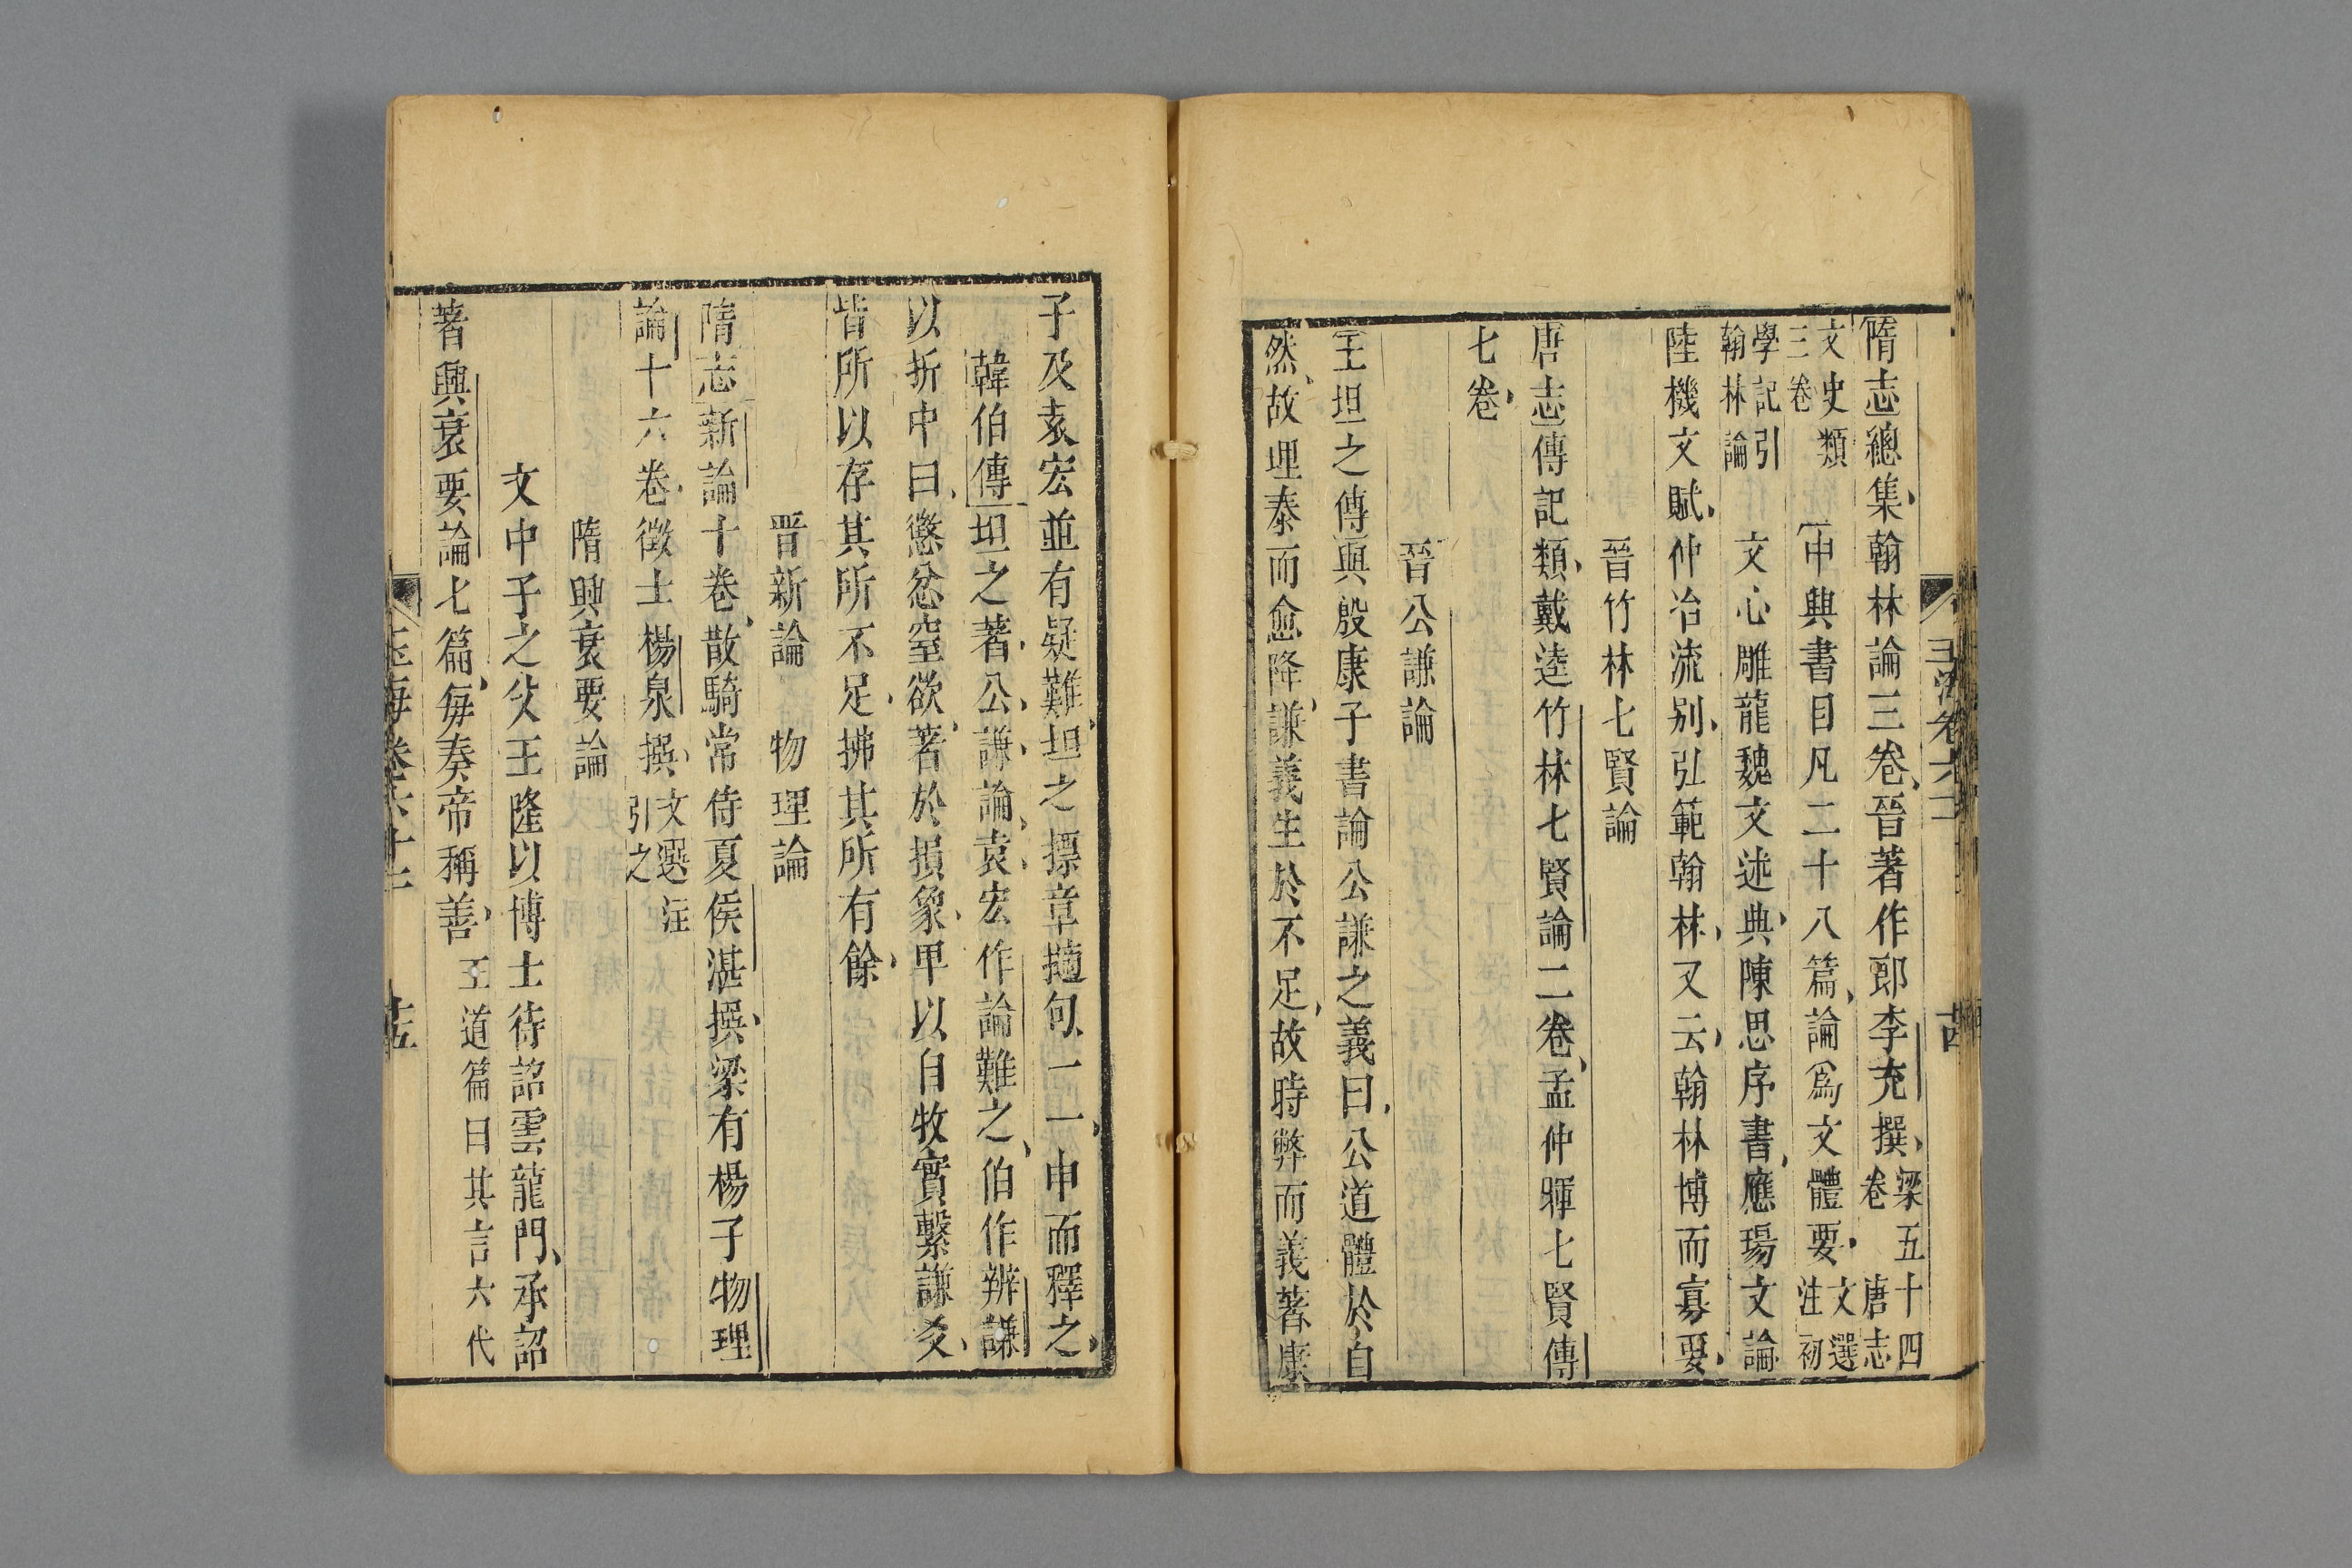 玉海卷六十二 十四
隋志總集翰林論三卷晉著作郎李充撰梁五十四卷唐志
文史類三卷中興書目凡二十八篇論爲文體要文選注初
學記引翰林論文心雕龍魏文述典陳思序書應瑒文論
陸機文賦仲洽流别弘範翰林又云翰林博而寡要
晉竹林七賢論
唐志傳記類戴逵竹林七賢論二卷孟仲暉七賢傳
七卷
晉公謙論
王坦之傳與殷康子書論公謙之義曰公道體於自
然故理泰而愈降謙義生於不足故時弊而義著康
子及袁宏並有疑難坦之摽章擿句一一申而釋之
韓伯傳坦之著公謙論袁宏作論難之伯作辨謙
以折中曰懲忿窒欲著於損象卑以自牧實繫謙爻
皆所以存其所不足拂其所有餘
晋新論 物理論
隋志新論十卷散騎常侍夏侯湛撰梁有楊子物理
論十六卷徵士楊泉撰文選注引之
隋興衰要論
文中子之父王隆以博士待詔雲龍門承詔
著興衰要論七篇每奏帝稱善王道篇曰其言六代
玉海卷六十二 十五